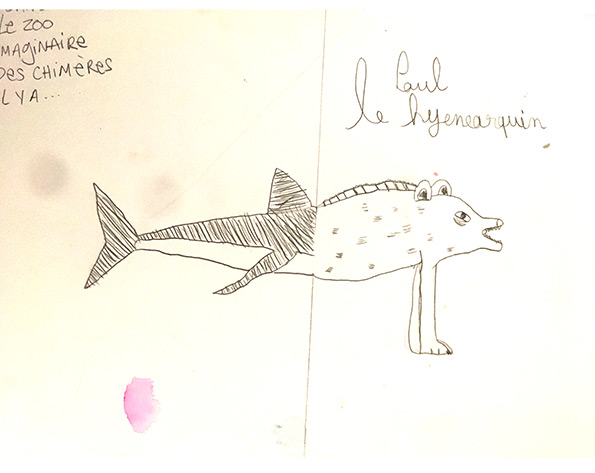 LE ZOO
MAGINAIRE
DES CHIMÈRES
L Y A...
Paul
le hyenearquin